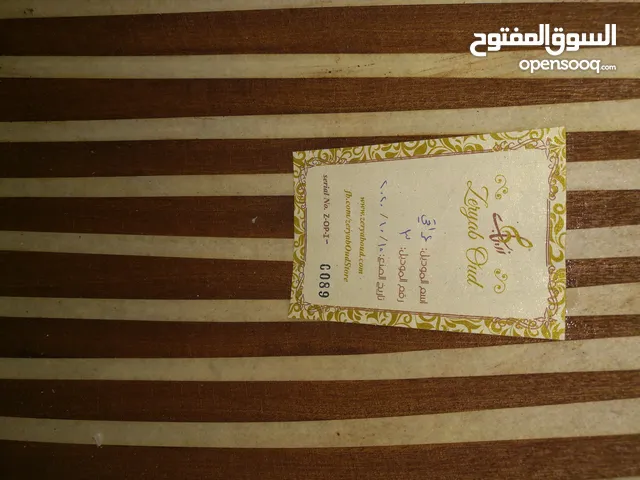 السوق المفتوح
opensooq.com
زرياب
Zeryab Oud
اسم الموديل: عراقي
رقم الموديل: ٣
تاريخ الصنع: ٢٠٢٠/١٠/١٥
www.zeryaboud.com
fb.com/zeryabOudStore
serial No. Z-OD-I- 0089